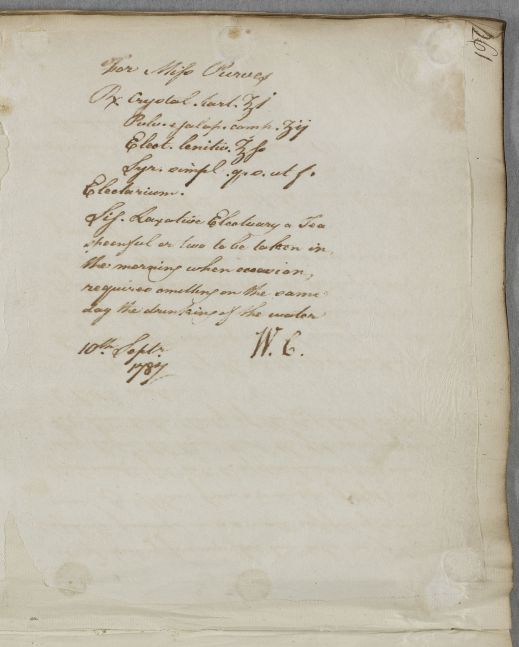 261
For Miss Purves
Rx Crystal. tart. ʒi
Pulv. e jalap. comp. ʒij
Elect. lenitiv. ℥ss
Syr. simpl. q. s. ut f.
Electarium.
Sig. Laxative Electuary a Tea
spoonful or two to be taken in
the morning when occasion
requires omitting on the same
day the drinking of the water
W. C.
10th Septr.
1787